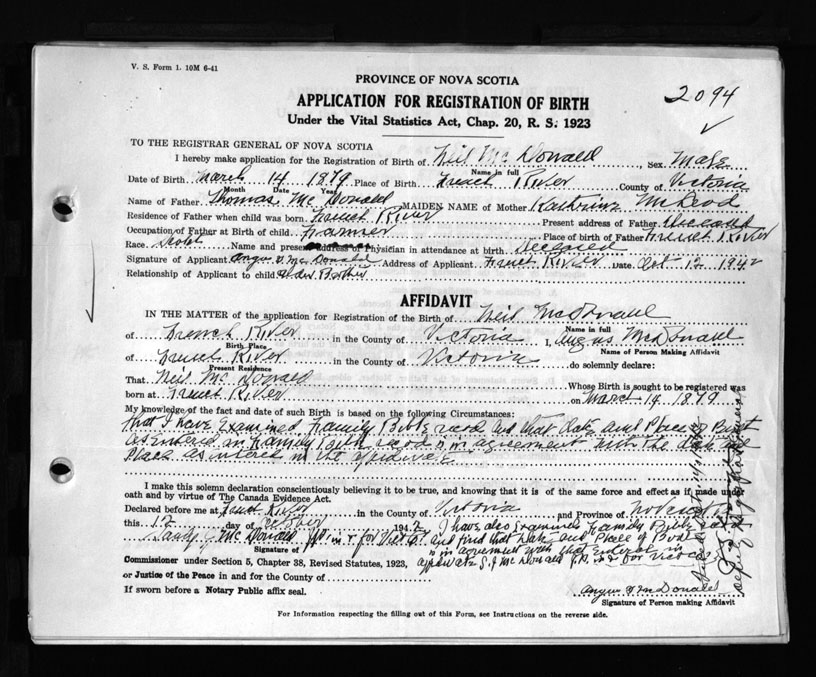 V. S. Form 1. 10M 6-41
PROVINCE OF NOVA SCOTIA
APPLICATION FOR REGISTRATION OF BIRTH
2094
Under the Vital Statistics Act, Chap. 20, R. S. 1923
TO THE REGISTRAR GENERAL OF NOVA SCOTIA
I hereby make application for the Registration of Birth of Neil McDonald, Sex Male
Name in full
Date of Birth March 14 1879 Place of Birth French River County of Victoria
Month Date Year
Name of Father Thomas McDonald MAIDEN NAME of Mother McLeod
Residence of Father when child was born French River Present address of Father Deceased
Occupation of Father at Birth of child Farmer Place of birth of Father French River
Race Scotch Name and present address of Physician in attendance at birth
Signature of Applicant Angus McDonald Address of Applicant French River Date Oct 12 1942
Relationship of Applicant to child Brother
AFFIDAVIT
IN THE MATTER of the application for Registration of the Birth of Neil McDonald
Name in full
of French River in the County of Victoria I, Angus McDonald
Birth Place Name of Person Making Affidavit
of French River in the County of Victoria do solemnly declare:
Present Residence
That Neil McDonald Whose Birth is sought to be registered was
born at French River on March 14 1879
My knowledge of the fact and date of such Birth is based on the following Circumstances:
that I have Examined Family Bible and that Date and Place of Birth
as entered in Family Bible is in agreement with the date
Place as entered in
I make this solemn declaration conscientiously believing it to be true, and knowing that it is of the same force and effect as if made under
oath and by virtue of The Canada Evidence Act.
Declared before me at French River in the County of Victoria and Province of
this 12 day of October 1942 I have also Examined Family Bible
McDonald and find that Date and Place of Birth
Signature of is in agreement with that Entered in
Commissioner under Section 5, Chapter 38, Revised Statutes, 1923,
or Justice of the Peace in and for the County of
If sworn before a Notary Public affix seal.
Angus McDonald
Signature of Person making Affidavit
For Information respecting the filling out of this Form, see Instructions on the reverse side.